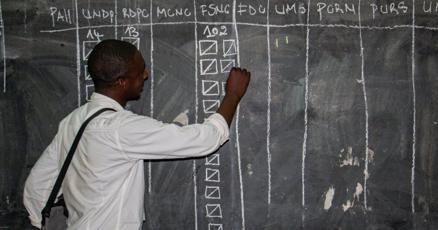 PAH UNDP RDPC MCNC FSNC FDU UMS PCRN PURS
14 13 102